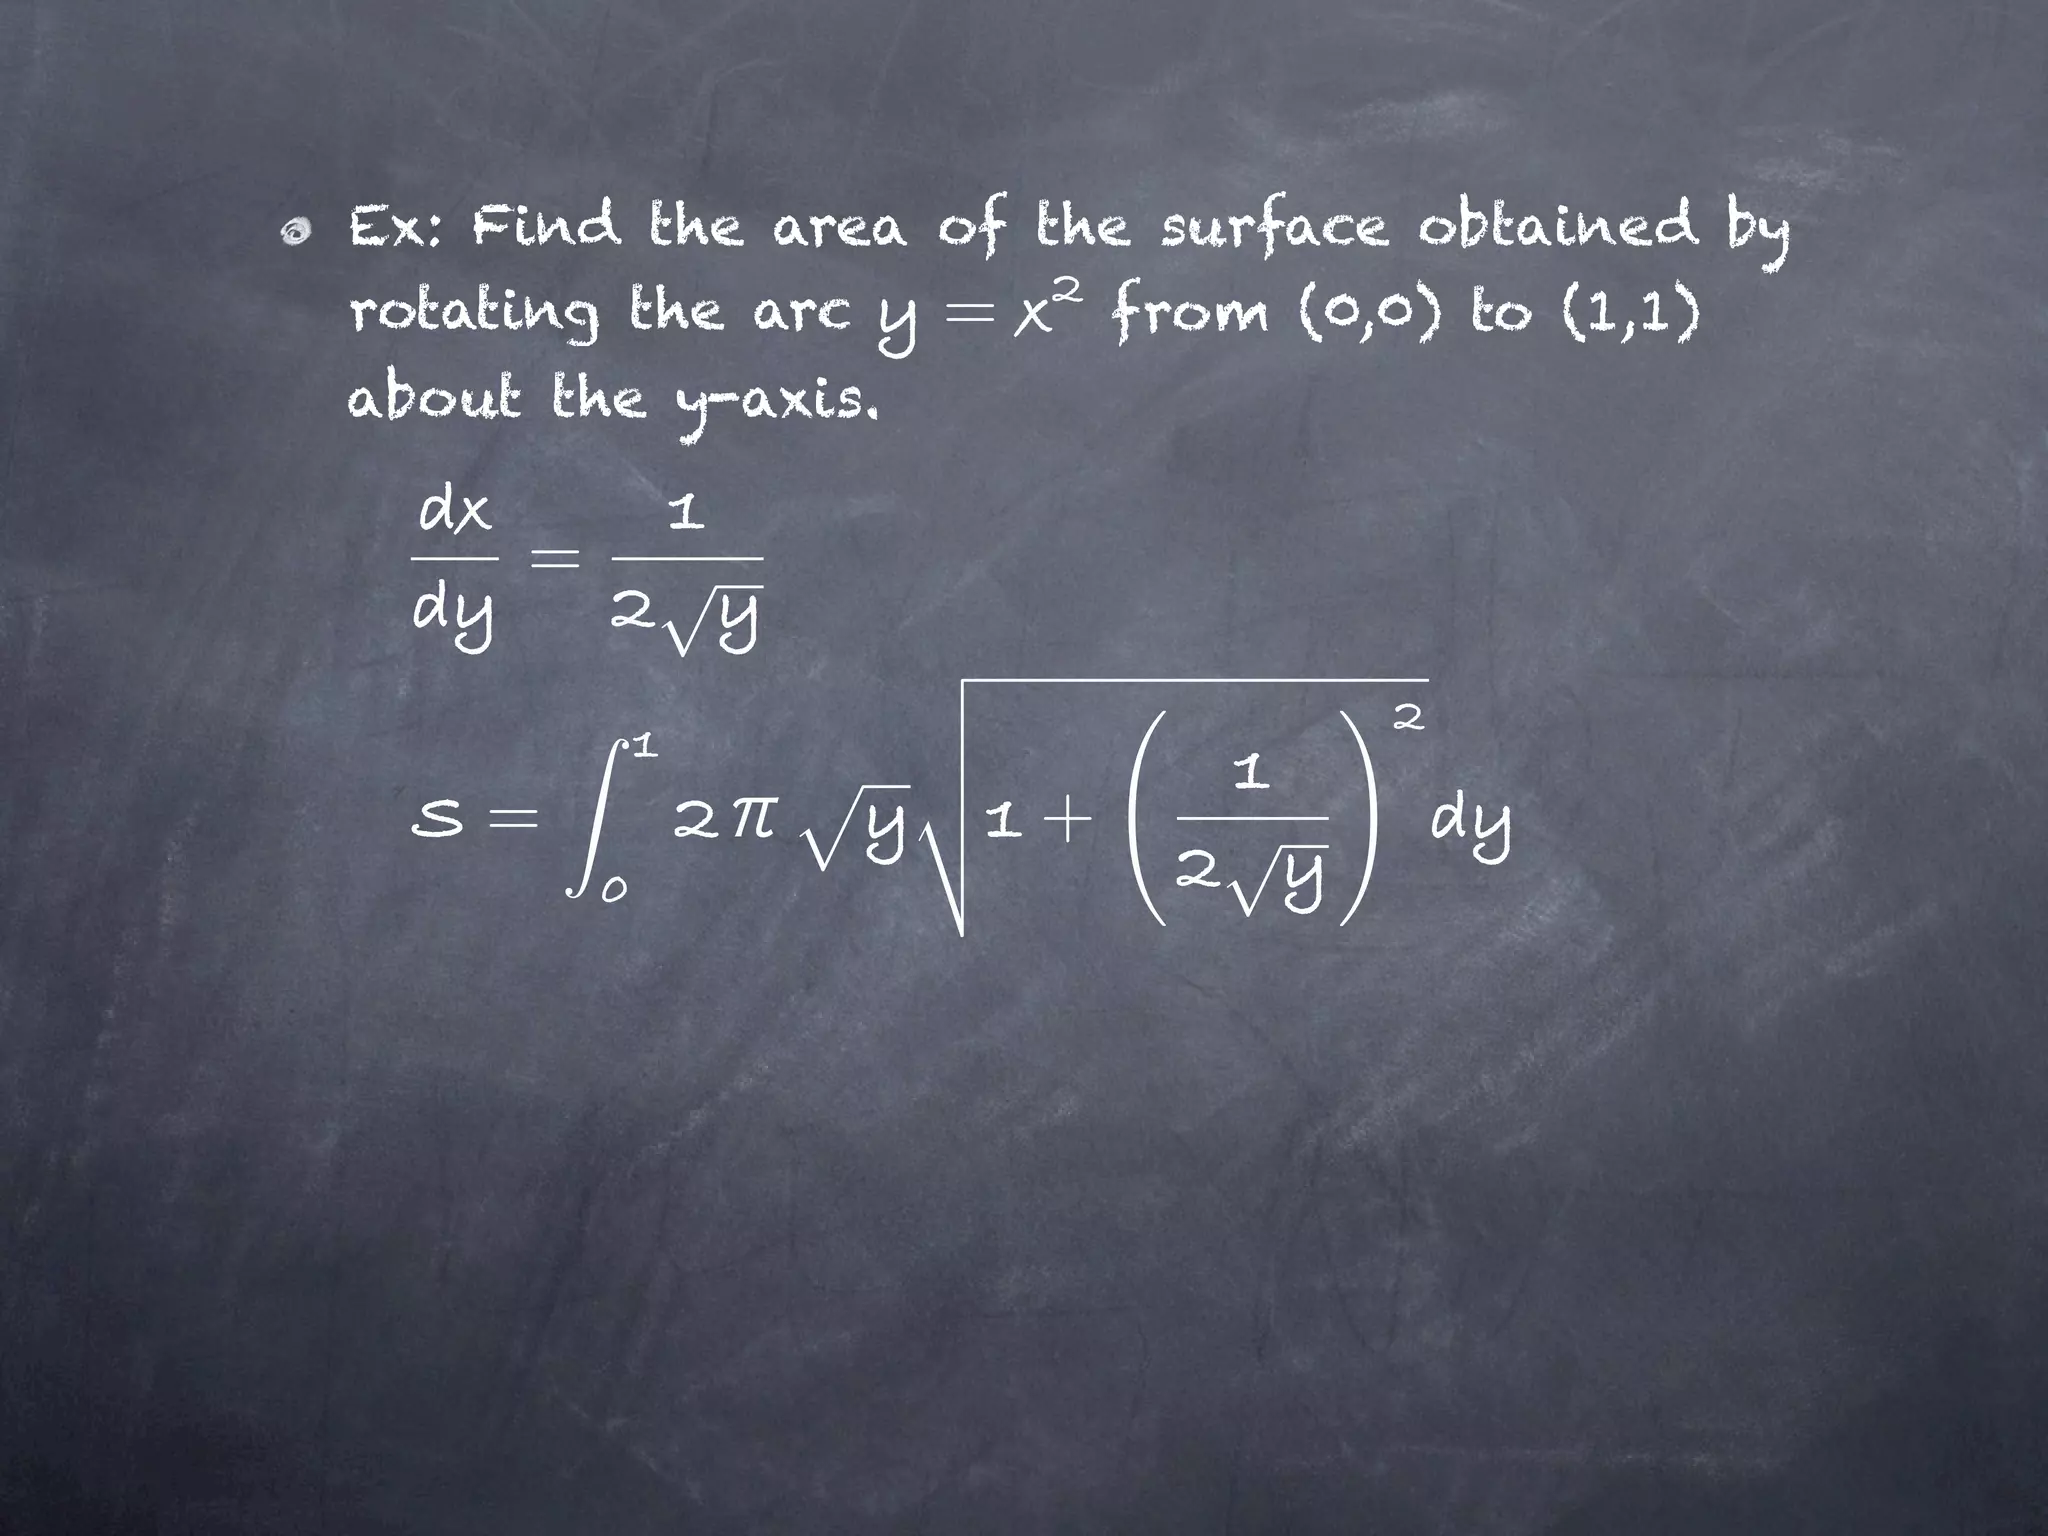 Ex: Find the area of the surface obtained by
rotating the arc y = x² from (0,0) to (1,1)
about the y-axis.
dx/dy = 1/(2√y)
S = ∫₀¹ 2π √y √(1 + (1/(2√y))²) dy